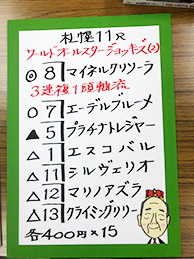 札幌11R
ワールドオールスタージョッキーズ(2)
◎8 マイネルクリソーラ
3連複1頭軸流
○7 エーデルブルーメ
▲5 プラチナトレジャー
△1 エスコバル
△11 シルヴェリオ
△12 マリノアズラ
△13 クライミングリリー
各400円×15